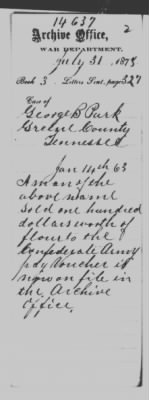 14637
2
Archive Office,
WAR DEPARTMENT.
July 31 1878
Book 3. Letters Sent, page 327
Case of
George B Park
County
Tennessee
Jan 14th 63
A man of the
above name
Sold one hundred
dollars worth of
flour to the
Confederate Army
Voucher is
now on file in
the Archive
Office.